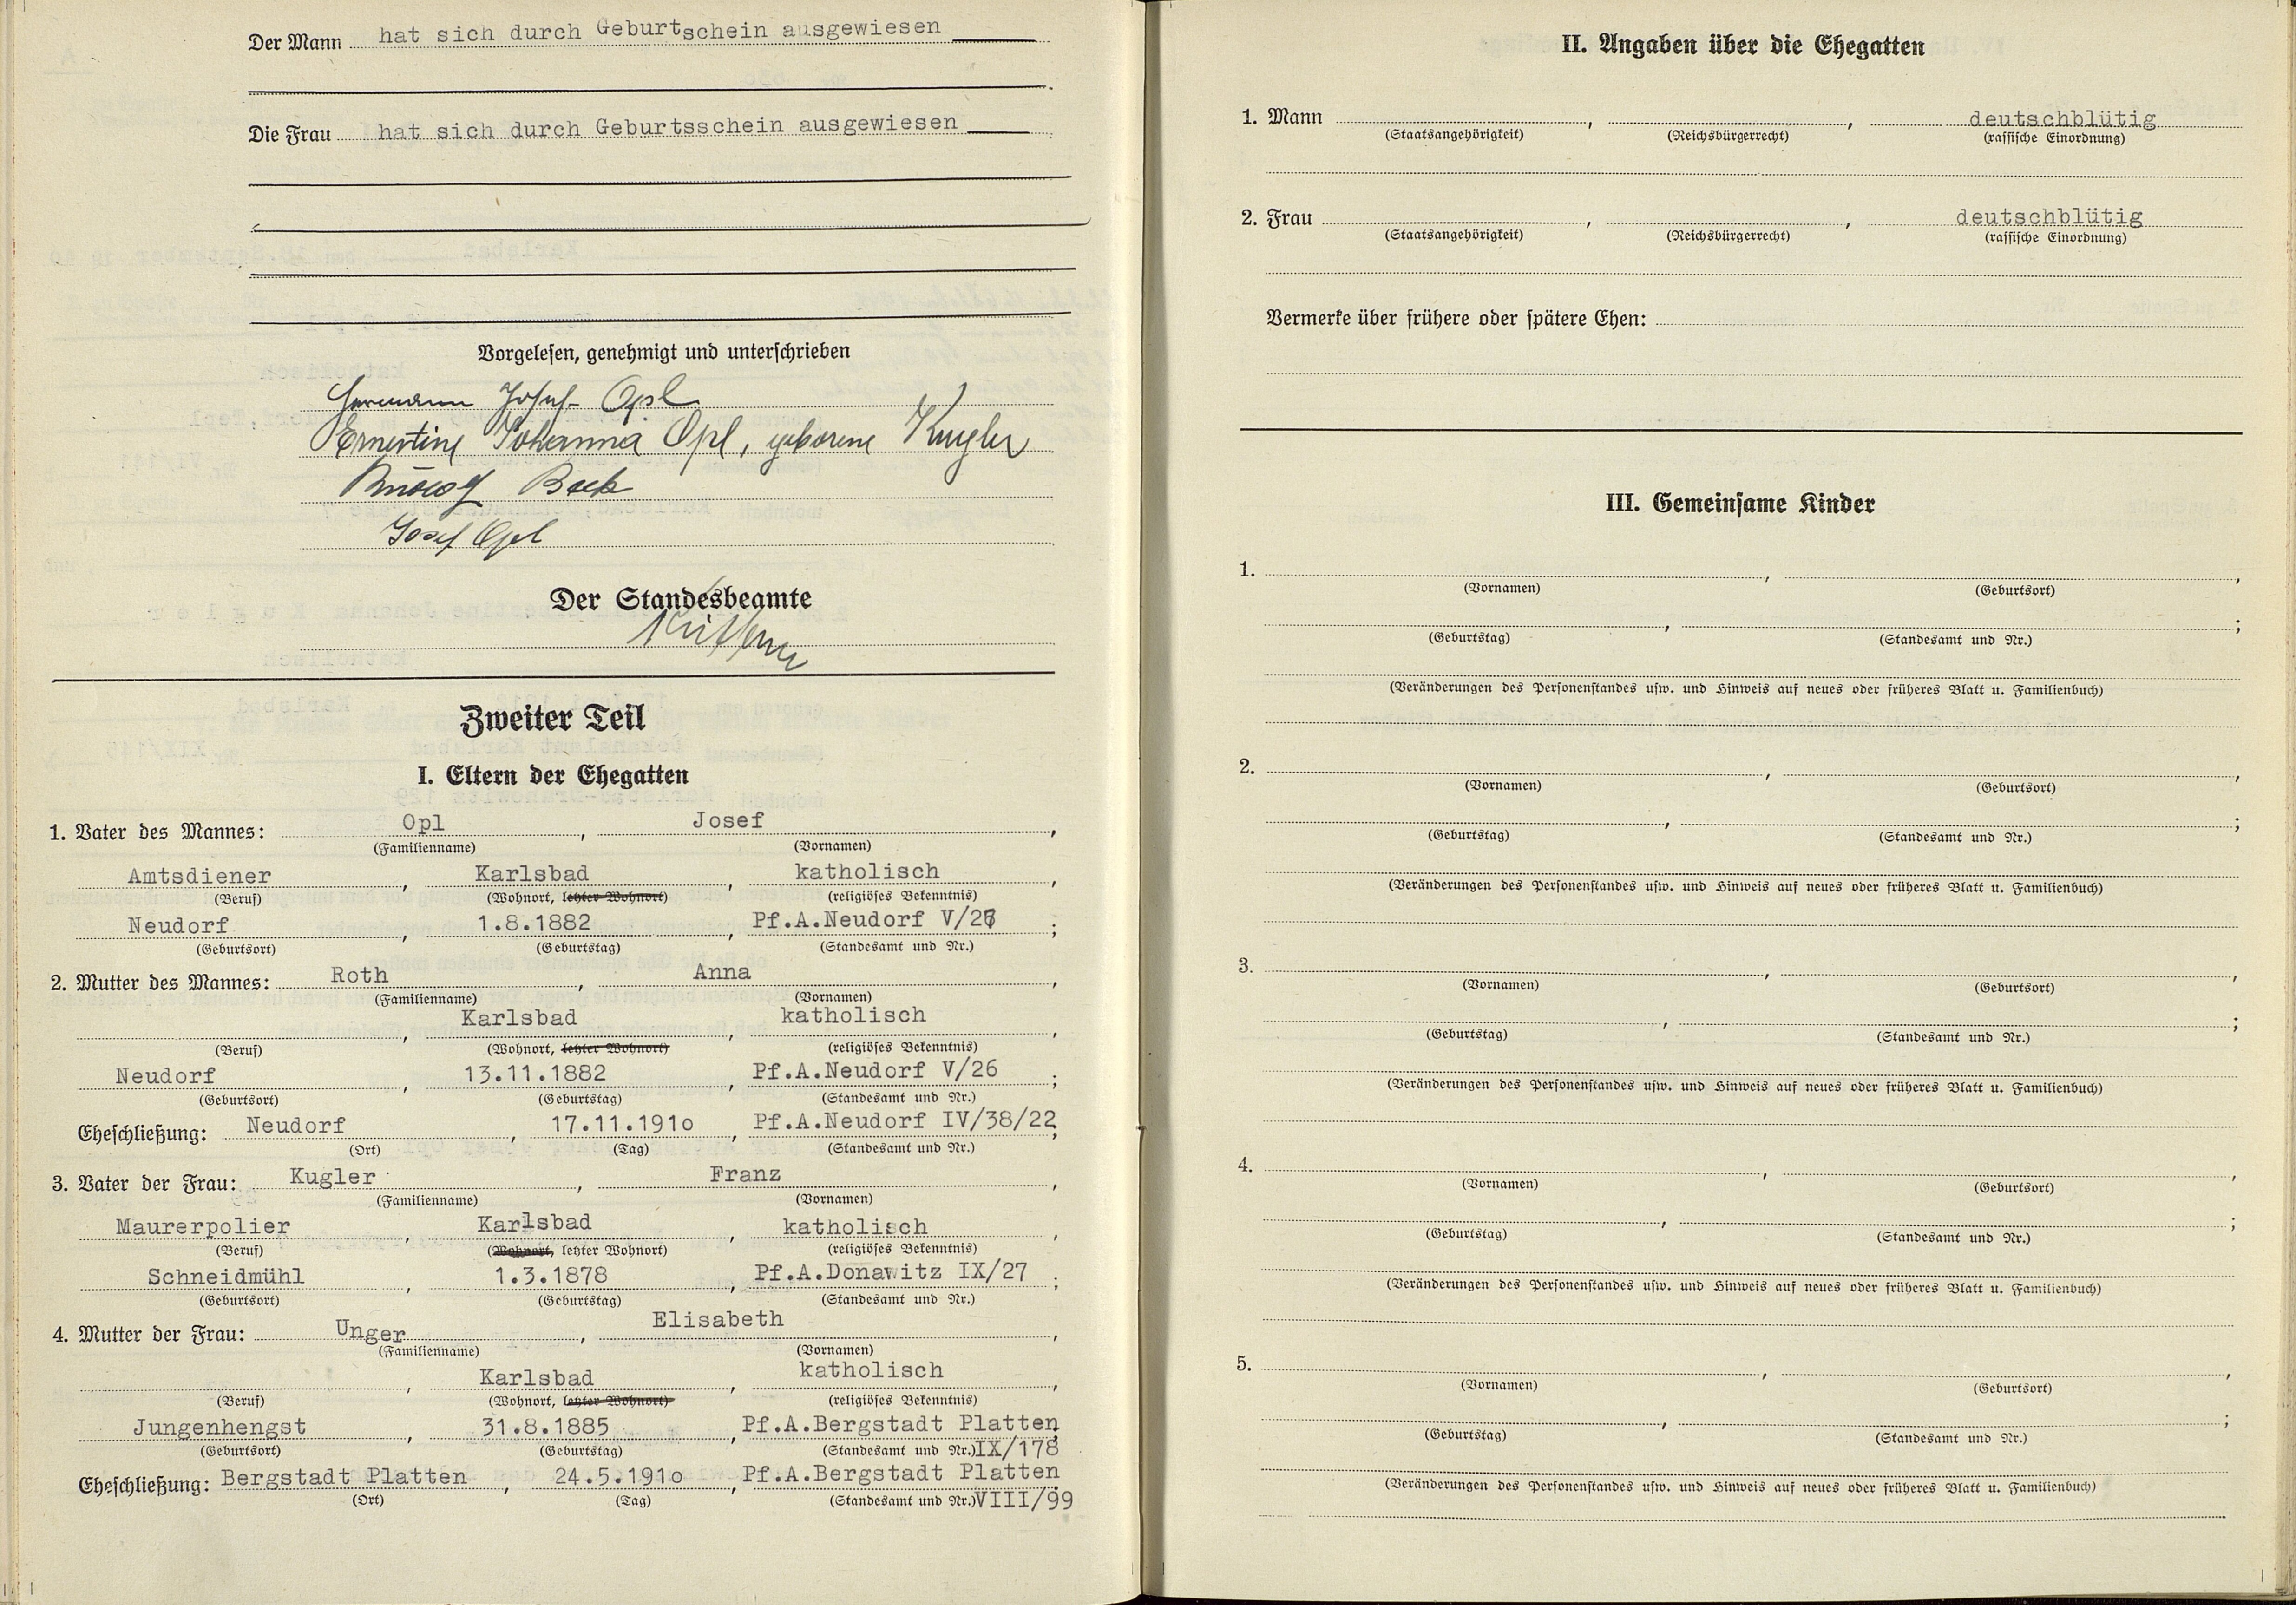 Der Mann hat sich durch Geburtschein ausgewiesen
Die Frau hat sich durch Geburtsschein ausgewiesen
Vorgelesen, genehmigt und unterschrieben
Hermann Josef Opl
Ernestine Johanna Opl, geborene Kugler
Josef Opl
Der Standesbeamte
Zweiter Teil
I. Eltern der Ehegatten
1. Vater des Mannes: Opl, Josef,
(Familienname) (Vornamen)
Amtsdiener, Karlsbad, katholisch,
(Beruf) (Wohnort, letzter Wohnort) (religiöses Bekenntnis)
Neudorf, 1.8.1882, Pf.A.Neudorf ;
(Geburtsort) (Geburtstag) (Standesamt und Nr.)
2. Mutter des Mannes: Roth, Anna,
(Familienname) (Vornamen)
Karlsbad, katholisch,
(Beruf) (Wohnort, letzter Wohnort) (religiöses Bekenntnis)
Neudorf, 13.11.1882, Pf.A.Neudorf V/26;
(Geburtsort) (Geburtstag) (Standesamt und Nr.)
Eheschließung: Neudorf, 17.11.191o, Pf.A.Neudorf IV/38/22;
(Ort) (Tag) (Standesamt und Nr.)
3. Vater der Frau: Kugler, Franz,
(Familienname) (Vornamen)
Maurerpolier, Karlsbad, katholisch,
(Beruf) (Wohnort, letzter Wohnort) (religiöses Bekenntnis)
Schneidmühl, 1.3.1878, Pf.A.Donawitz IX/27;
(Geburtsort) (Geburtstag) (Standesamt und Nr.)
4. Mutter der Frau: Unger, Elisabeth,
(Familienname) (Vornamen)
, Karlsbad, katholisch,
(Beruf) (Wohnort, letzter Wohnort) (religiöses Bekenntnis)
Jungenhengst, 31.8.1885, Pf.A.Bergstadt Platten;
(Geburtsort) (Geburtstag) (Standesamt und Nr.) IX/178
Eheschließung: Bergstadt Platten, 24.5.191o, Pf.A.Bergstadt Platten
(Ort) (Tag) (Standesamt und Nr.) VIII/99
II. Angaben über die Ehegatten
1. Mann , , deutschblütig
(Staatsangehörigkeit) (Reichsbürgerrecht) (rassische Einordnung)
2. Frau , , deutschblütig
(Staatsangehörigkeit) (Reichsbürgerrecht) (rassische Einordnung)
Vermerke über frühere oder spätere Ehen:
III. Gemeinsame Kinder
1. , ,
(Vornamen) (Geburtsort)
, ;
(Geburtstag) (Standesamt und Nr.)
(Veränderungen des Personenstandes usw. und Hinweis auf neues oder früheres Blatt u. Familienbuch)
2. , ,
(Vornamen) (Geburtsort)
, ;
(Geburtstag) (Standesamt und Nr.)
(Veränderungen des Personenstandes usw. und Hinweis auf neues oder früheres Blatt u. Familienbuch)
3. , ,
(Vornamen) (Geburtsort)
, ;
(Geburtstag) (Standesamt und Nr.)
(Veränderungen des Personenstandes usw. und Hinweis auf neues oder früheres Blatt u. Familienbuch)
4. , ,
(Vornamen) (Geburtsort)
, ;
(Geburtstag) (Standesamt und Nr.)
(Veränderungen des Personenstandes usw. und Hinweis auf neues oder früheres Blatt u. Familienbuch)
5. , ,
(Vornamen) (Geburtsort)
, ;
(Geburtstag) (Standesamt und Nr.)
(Veränderungen des Personenstandes usw. und Hinweis auf neues oder früheres Blatt u. Familienbuch)